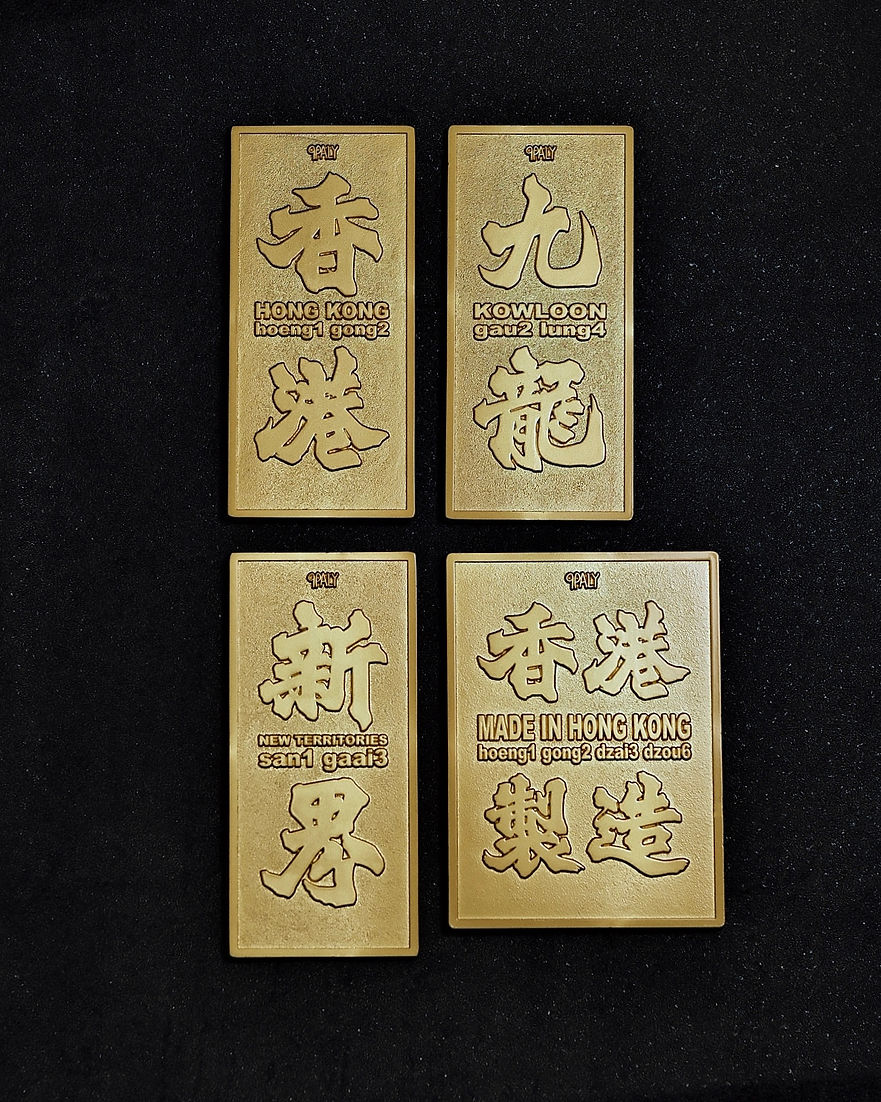 香
HONG KONG
hoeng1 gong2
港
九
KOWLOON
gau2 lung4
龍
新
NEW TERRITORIES
san1 gaai3
界
香港
MADE IN HONG KONG
hoeng1 gong2 dzai3 dzou6
製造